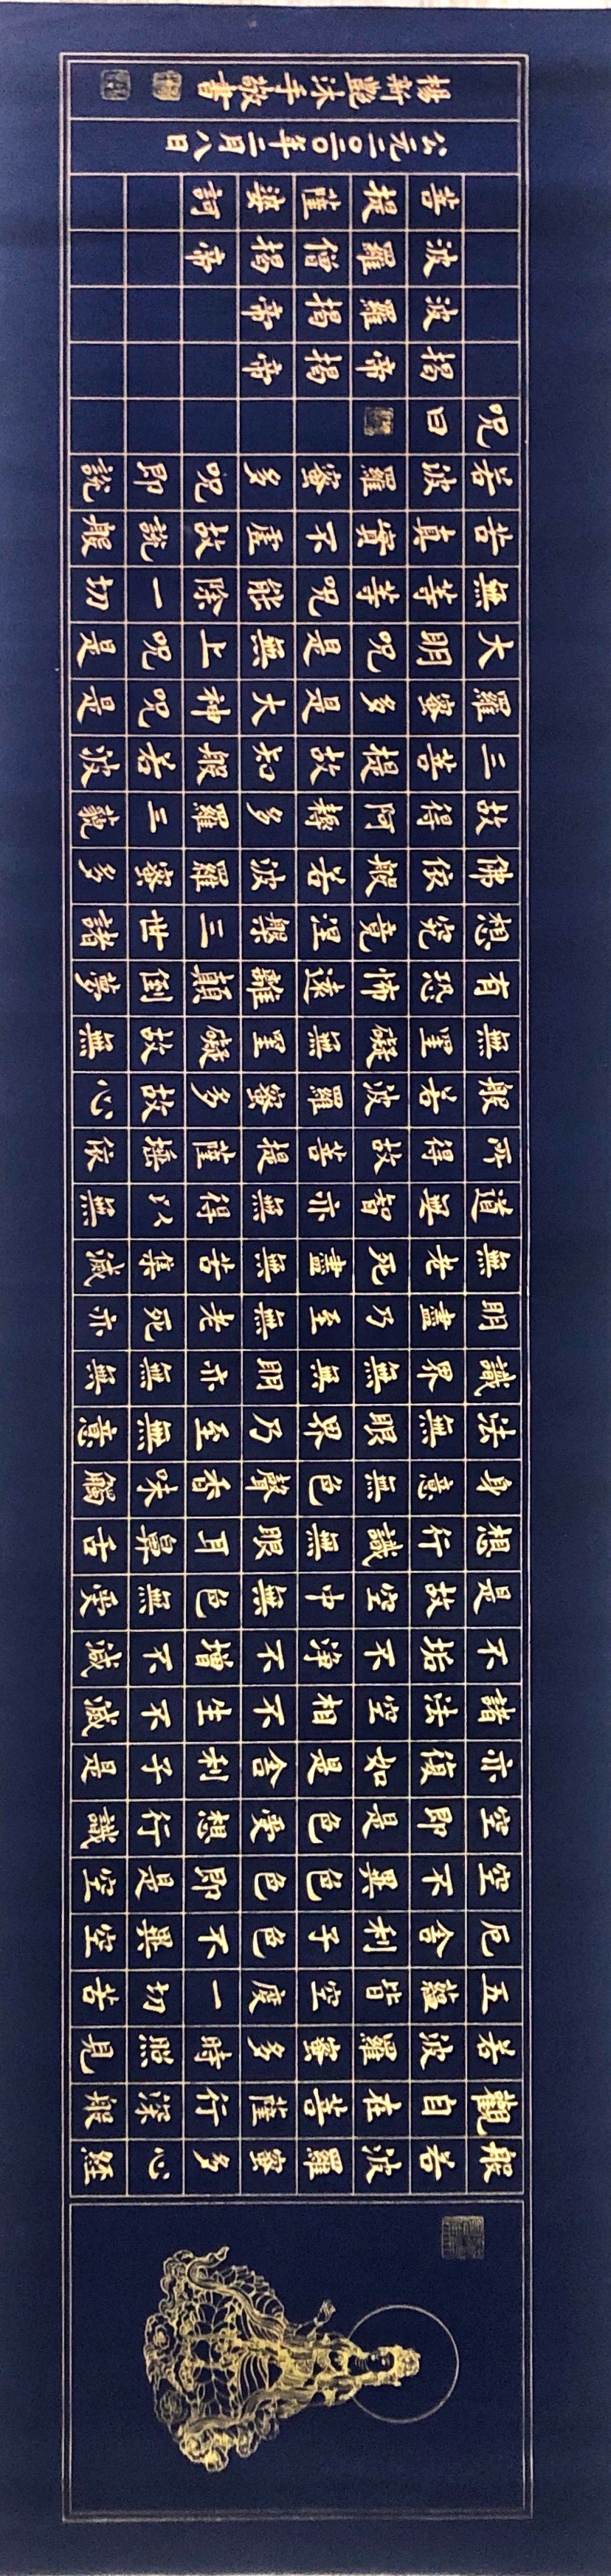 般若波羅蜜多心経
觀自在菩薩行深般
若波羅蜜多時照見
五蘊皆空度一切苦
厄舍利子色不異空
空不異色色即是空
空即是色受想行識
亦復如是舍利子是
諸法空相不生不滅
不垢不淨不增不減
是故空中無色無受
想行識無眼耳鼻舌
身意無色聲香味觸
法無眼界乃至無意
識界無無明亦無無
明盡乃至無老死亦
無老死盡無苦集滅
道無智亦無得以無
所得故菩提薩埵依
般若波羅蜜多故心
無罣礙無罣礙故無
有恐怖遠離顛倒夢
想究竟涅槃三世諸
佛依般若波羅蜜多
故得阿耨多羅三藐
三菩提故知般若波
羅蜜多是大神呪是
大明呪是無上呪是
無等等呪能除一切
苦真實不虛故說般
若波羅蜜多呪即說
呪曰
揭帝揭帝
波羅揭帝
波羅僧揭帝
菩提薩婆訶
公元二〇二〇年二月八日
楊新艷沐手敬書